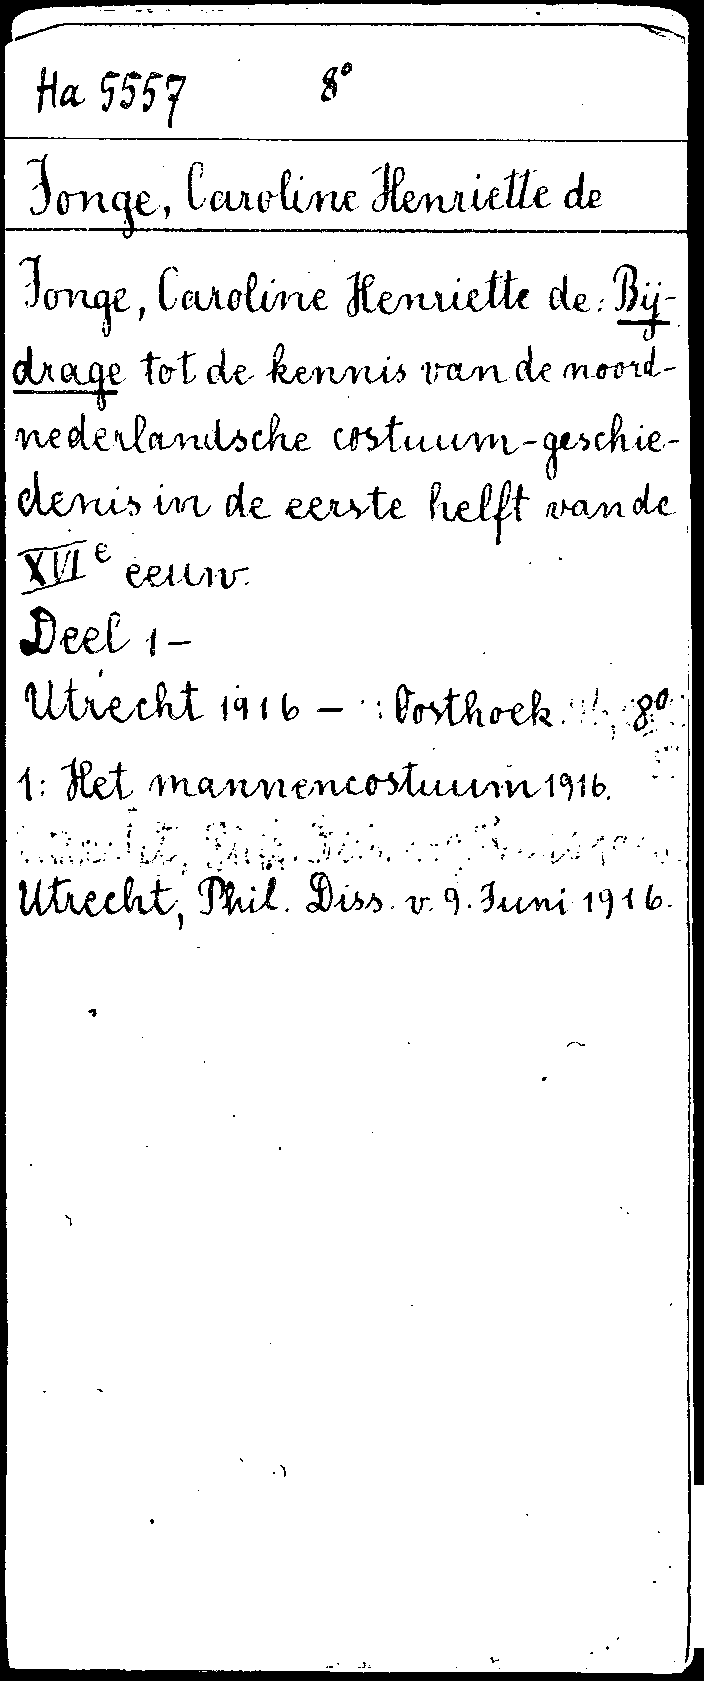 Ha 5557 8°
Jonge, Caroline Henriette de
Jonge, Caroline Henriette de: Bij-
drage tot de kennis van de noord-
nederlandsche costuum-geschie-
denis in de eerste helft van de
XVIe eeuw.
Deel 1-
Utrecht 1916 - : Oosthoek. 8°
1: Het mannencostuum 1916.
Utrecht, Phil. Diss. v. 9. Juni 1916.